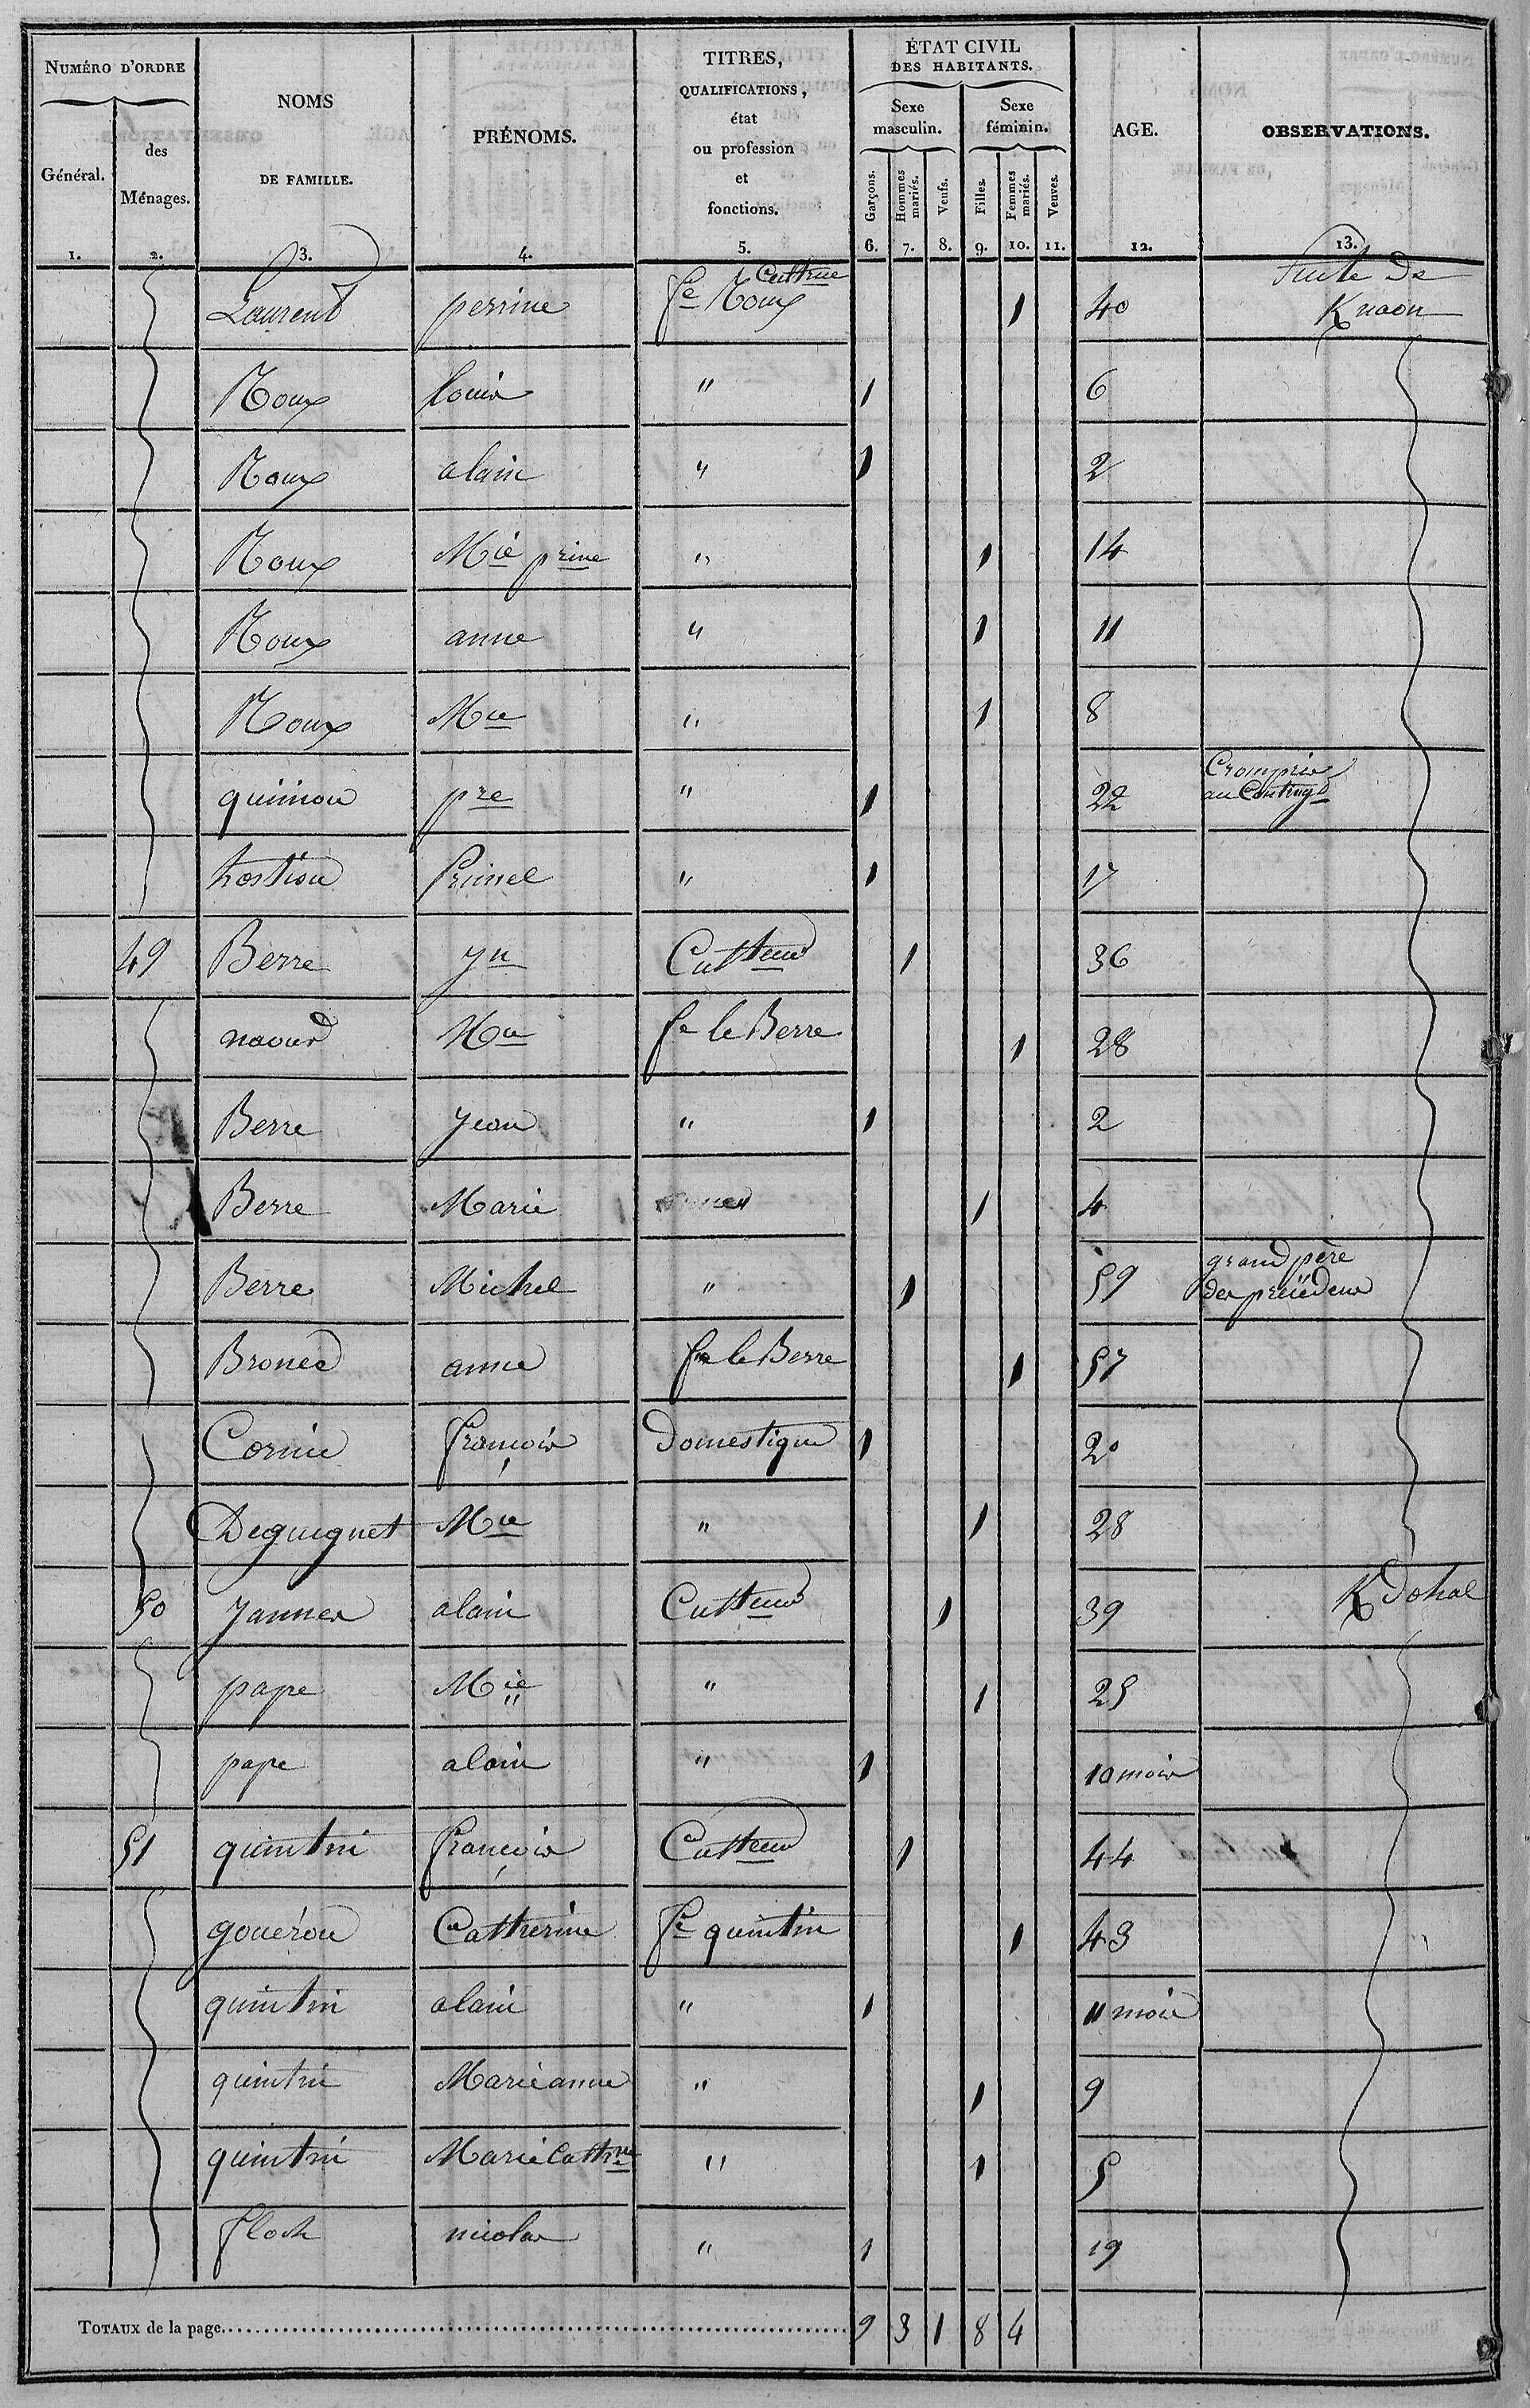 NUMÉRO D'ORDRE NOMS DE FAMILLE. PRÉNOMS. TITRES, QUALIFICATIONS, état ou profession et fonctions. ÉTAT CIVIL DES HABITANTS. AGE. OBSERVATIONS.
Général. des Ménages. Sexe masculin. Sexe féminin.
Garçons. Hommes mariés. Veufs. Filles. Femmes mariés. Veuves.
1. 2. 3. 4. 5. 6. 7. 8. 9. 10. 11. 12. 13.
Laurent perrine fe Roux Cultrice 1 40 Suite de Knaon
Roux louis " 1 6
Roux alain " 1 2
Roux Mie prine " 1 14
Roux anne " 1 11
Roux Mie " 1 8
quiniou pre " 1 22 Compris au Contingt
hostiou Primel " 1 17
49 Berre yn Cultteur 1 36
naour Mie fe le Berre 1 28
Berre Jean " 1 2
Berre Marie " 1 4
Berre Michel " 1 59 grand père des précédens
Bronec anne fe le Berre 1 57
Cornic françois Domestique 1 20
Deguignet Mie " 1 28
50 Jannes alain Cultteur 1 39 K Dohal
pape Mie " 1 25
pape alain " 1 10 mois
51 quintin françois Cultteur 1 44
gouérou Catherine fe quintin 1 43
quintin alain " 1 11 mois
quintin Marie anne " 1 9
quintin Marie Cathne " 1 5
floch nicolas " 1 19
TOTAUX de la page 9 3 1 8 4